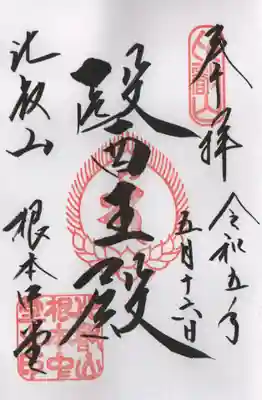 奉拝
令和五年
五月十六日
醫王殿
比叡山
根本中堂
比叡山
根本中
堂印